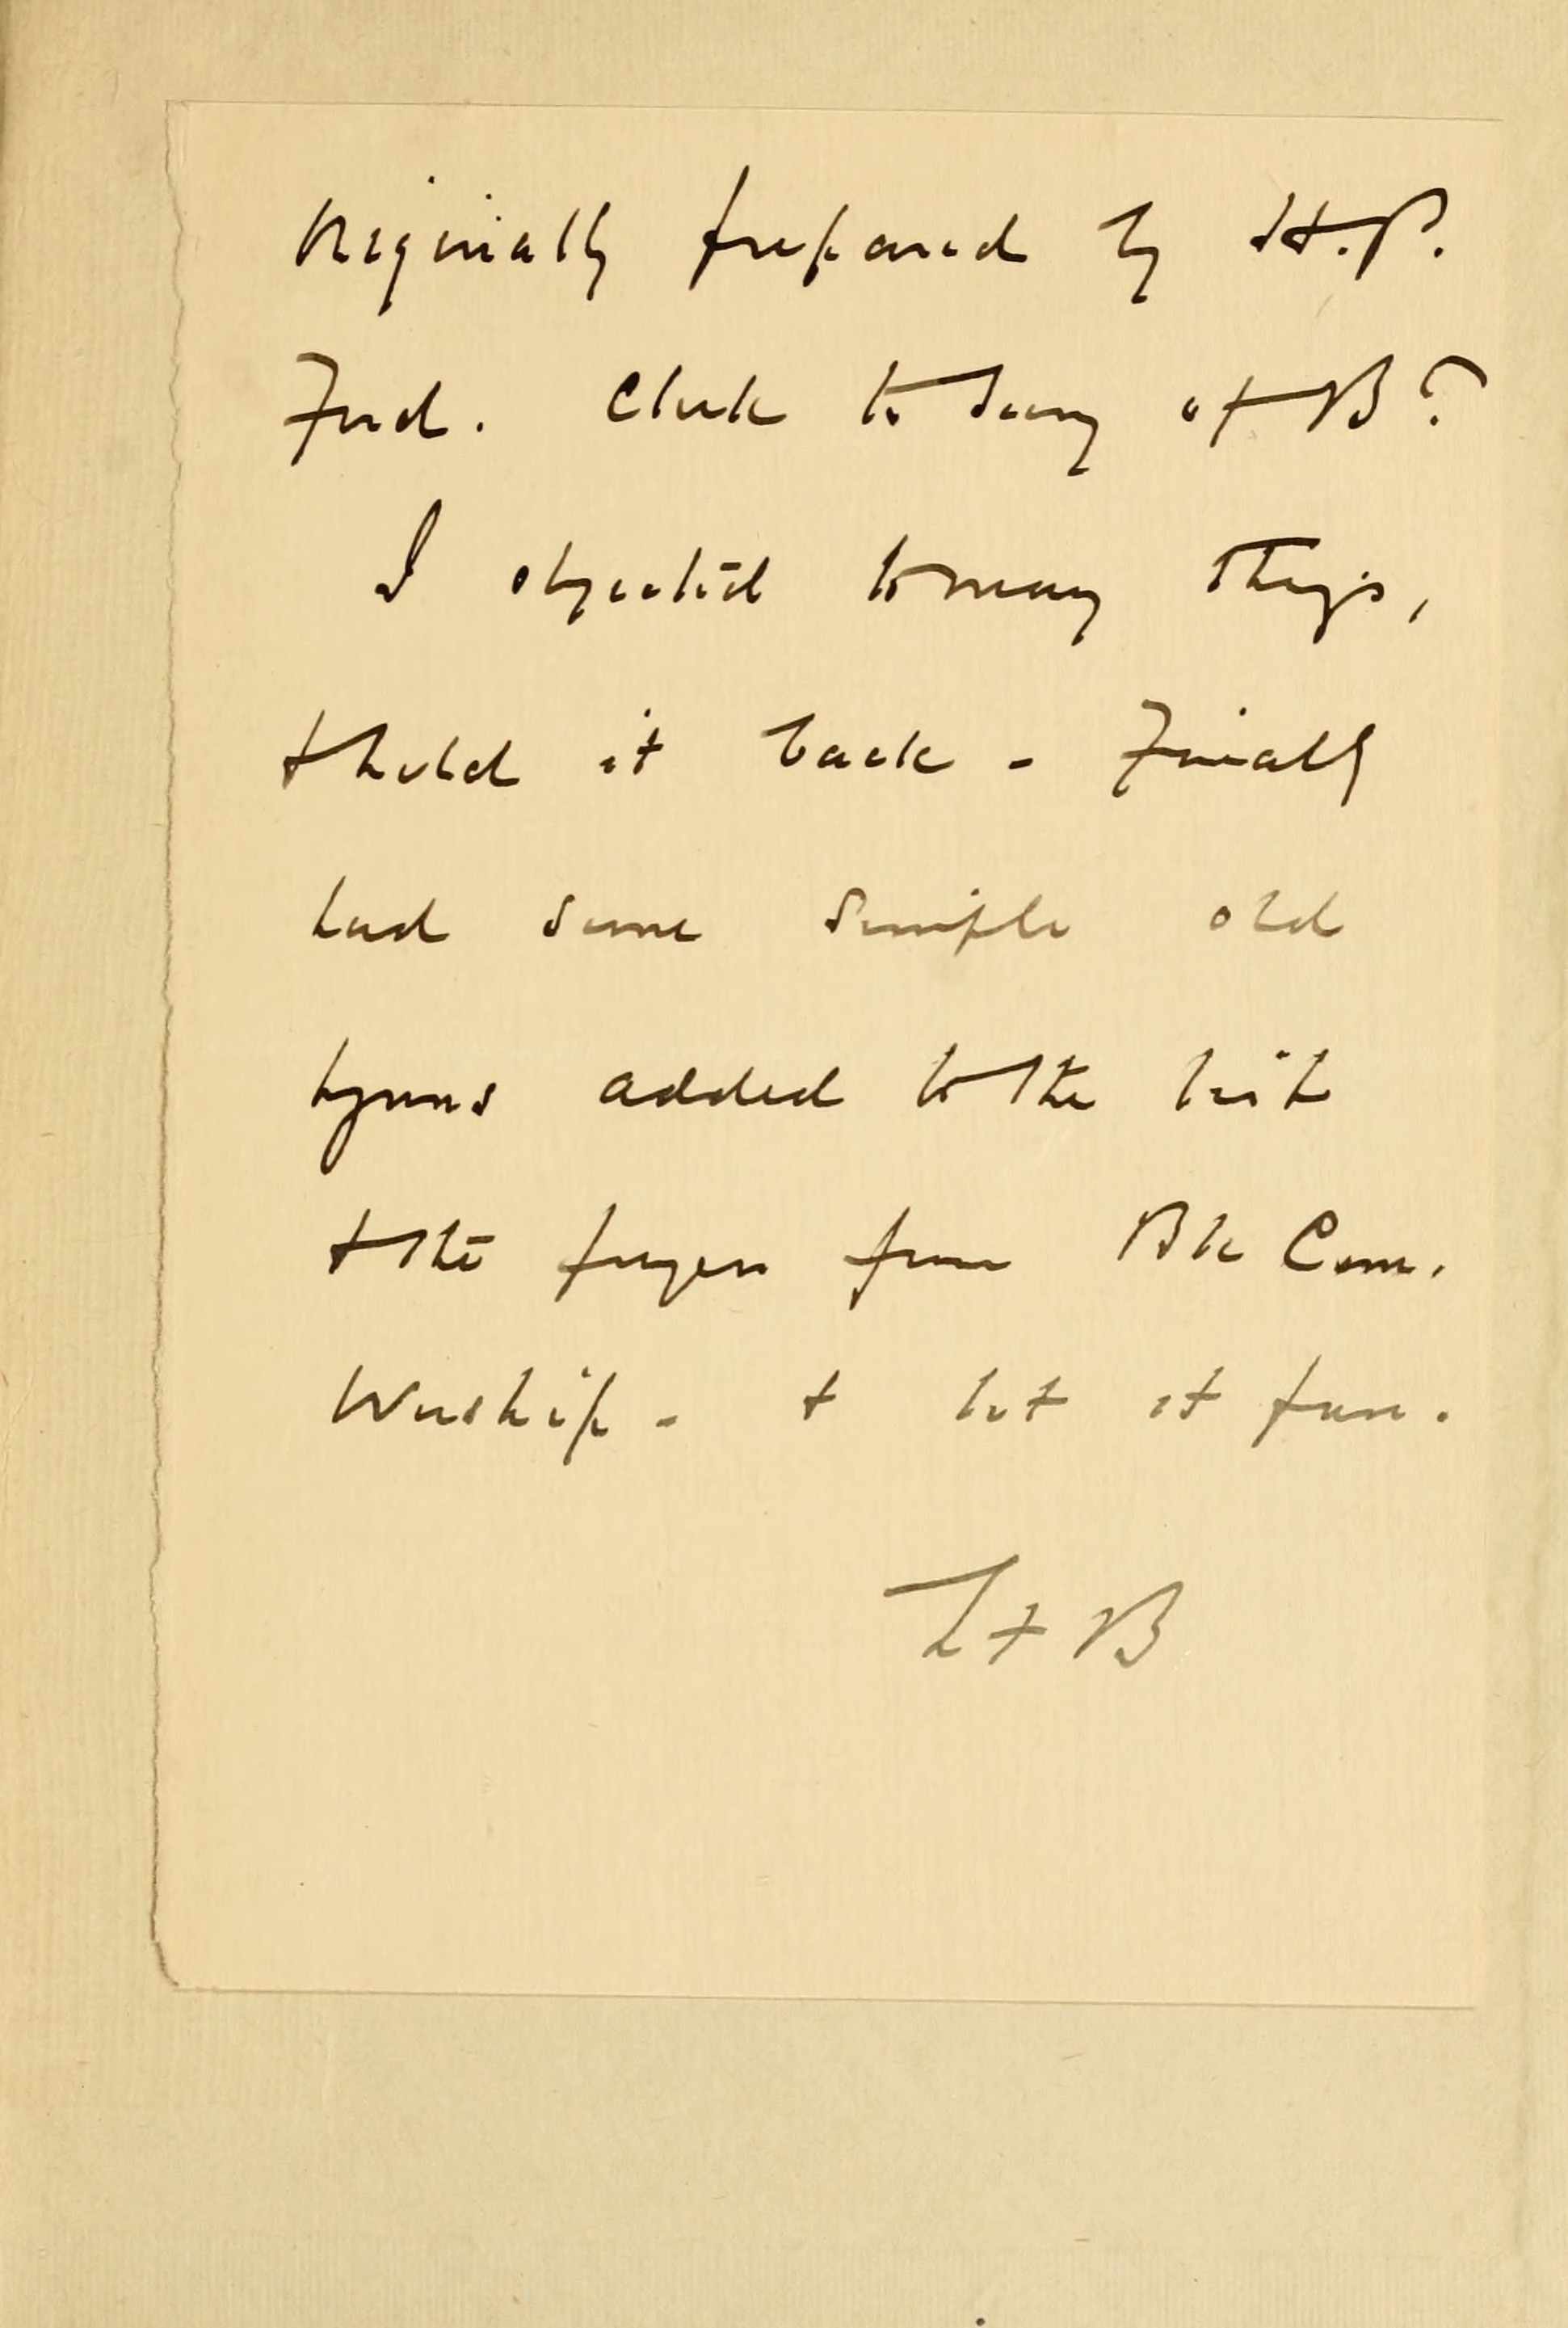 Originally prepared by H.P.
Ford. Clerk to Sessy of B?
I objected to many things,
& held it back - Finally
had some simple old
hymns added to the list
& the prayers from Bk Com.
Worship - & let it pass.
LFB